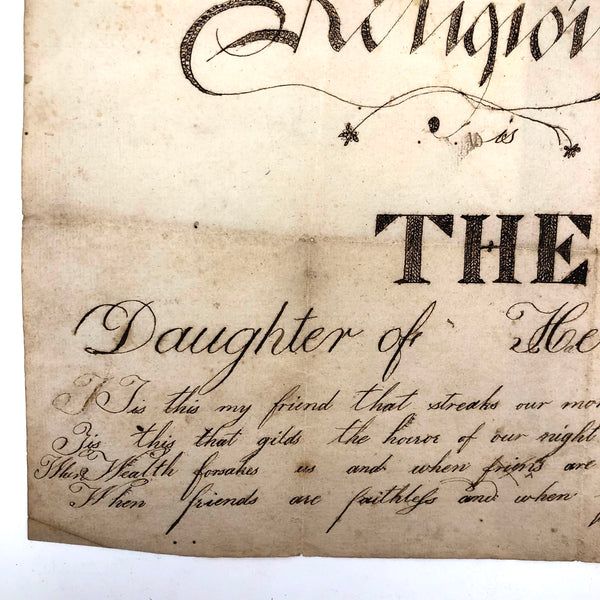 Religio
is
THE
Daughter of He
Tis this my friend that streaks our mor
Tis this that gilds the horror of our night
When Wealth forsakes us and when friens are
When friends are faithless and when